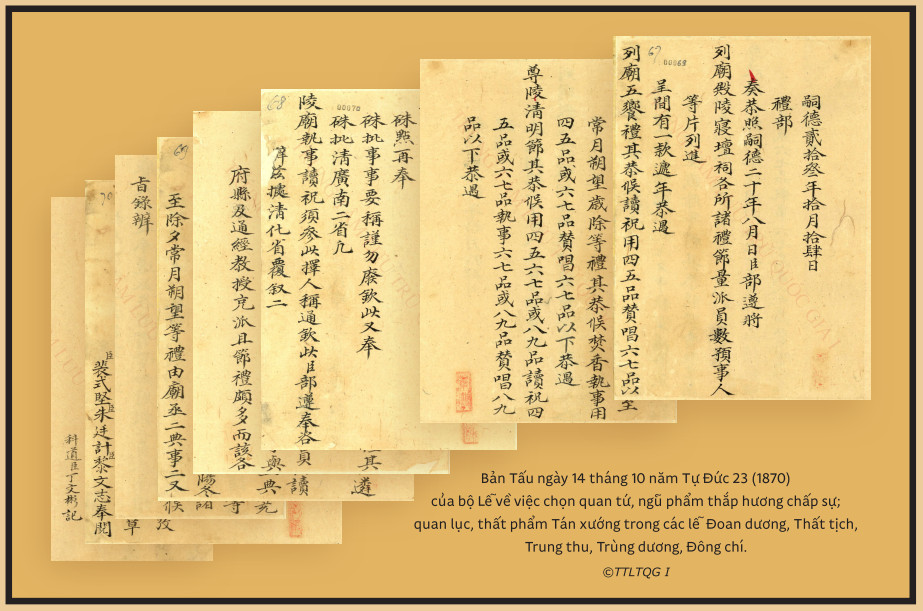 嗣德貳拾叄年拾月拾肆日
禮部
奏恭照嗣德二十年八月日臣部遵將
列廟殿陵寢壇祠各所諸禮節量派員數預事人
等片列進
呈間有一款遞年恭遇
列廟五饗禮其恭候讀祝用四五品贊唱六七品以至
67
00069
常月朔望歲除等禮其恭候焚香執事用
四五品或六七品贊唱六七品以下恭遇
尊陵清明節其恭候用四五六七品或八九品讀祝四
五品或六七品執事六七品或八九品贊唱八九
品以下恭遇
硃點再奉
硃批事事要稱謹勿廢欽此又奉
硃批清廣南二省凡
陵廟執事讀祝須參此擇人稱通欽此臣部遵奉咨
據清化省覆叙二
68
00070
府縣及通經教授充派且節禮頗多而該各
至除夕常月朔望等禮由廟丞二典事二又
69
旨錄辦
70
臣裴式堅臣朱廷計臣黎文志奉閱
科道臣丁文彬記
Bản Tấu ngày 14 tháng 10 năm Tự Đức 23 (1870)
của bộ Lễ về việc chọn quan tứ, ngũ phẩm thắp hương chấp sự;
quan lục, thất phẩm Tán xướng trong các lễ Đoan dương, Thất tịch,
Trung thu, Trùng dương, Đông chí.
©TTLTQG I